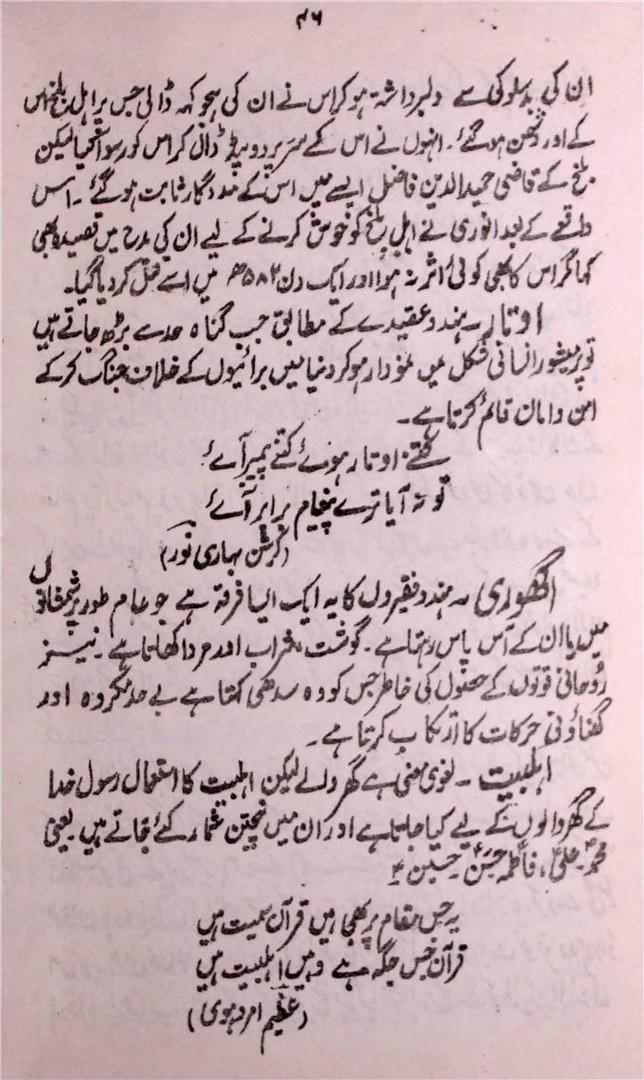 ۴۶
ان کی بدسلوکی سے دلبرداشتہ ہوکر اس نے ان کی ہجو کہہ ڈالی جس پر اہل بلخ اس
کے اور دشمن ہوگئے۔ انہوں نے اس کے سر پر دوپٹہ ڈال کر اس کو رسوا کیا لیکن
بلخ کے قاضی حمیدالدین فاضل ایسے میں اس کے مددگار ثابت ہوگئے۔ اس
واقعے کے بعد انوری نے اہل بلخ کو خوش کرنے کے لیے ان کی مدح میں قصیدہ بھی
کہا مگر اس کا بھی کوئی اثر نہ ہوا اور ایک دن ۵۸۲ھ میں اسے قتل کردیا گیا۔
اوتار۔ ہندو عقیدے کے مطابق جب گناہ حد سے بڑھ جاتے ہیں
تو پرمیشور انسانی شکل میں نمودار ہوکر دنیا میں برائیوں کے خلاف جنگ کرکے
امن و امان قائم کرتا ہے۔
کتنے اوتار ہوئے کتنے پیمبر آئے
تو نہ آیا ترے پیغام برابر آئے
(کرشن بہاری نور)
اگھوری۔ ہندو فقیروں کا یہ ایک ایسا فرقہ ہے جو عام طور پر شمشانوں
میں یا ان کے آس پاس رہتا ہے۔ گوشت شراب اور مردا کھاتا ہے۔ نیز
روحانی قوتوں کے حصول کی خاطر جس کو وہ سدھی کہتا ہے بے حد مکروہ اور
گھناؤنی حرکات کا ارتکاب کرتا ہے۔
اہلبیت۔ لغوی معنی ہے گھر والے لیکن اہلبیت کا استعمال رسول خدا
کے گھر والوں کے لیے کیا جاتا ہے اور ان میں پنجتن شمار کئے جاتے ہیں۔ یعنی
محمد، علی، فاطمہ، حسن، حسین
یہ جس مقام پر بھی ہیں قرآن سمیت ہیں
قرآن جس جگہ ہے وہیں اہلبیت ہیں
(عظیم امروہوی)